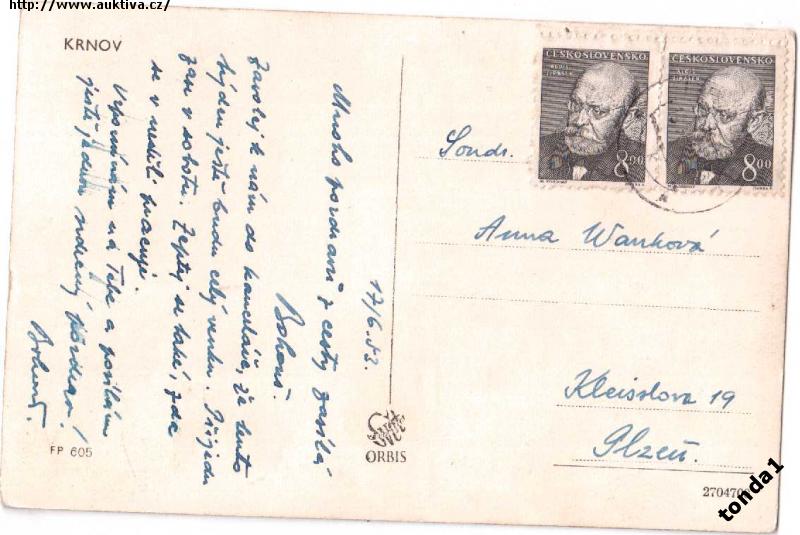 http://www.auktiva.cz/
KRNOV
17/6.53.
Mnoho pozdravů z cesty zasílá
Bohouš.
Zavolej k nám do kanceláře, že tento
týden ještě budu celý venku. Přijedu
zase v sobotu. Zeptej se také, zda
se v neděli pracuje.
Vzpomínám na Tebe a posílám
ještě jeden srdečný pozdrav!
Bohouš.
FP 605
ORBIS
ČESKOSLOVENSKO
ALOIS
JIRÁSEK
8,00
ČESKOSLOVENSKO
ALOIS
JIRÁSEK
8,00
Soudr.
Anna Waňková
Kleisslova 19
Plzeň.
270470
tonda1